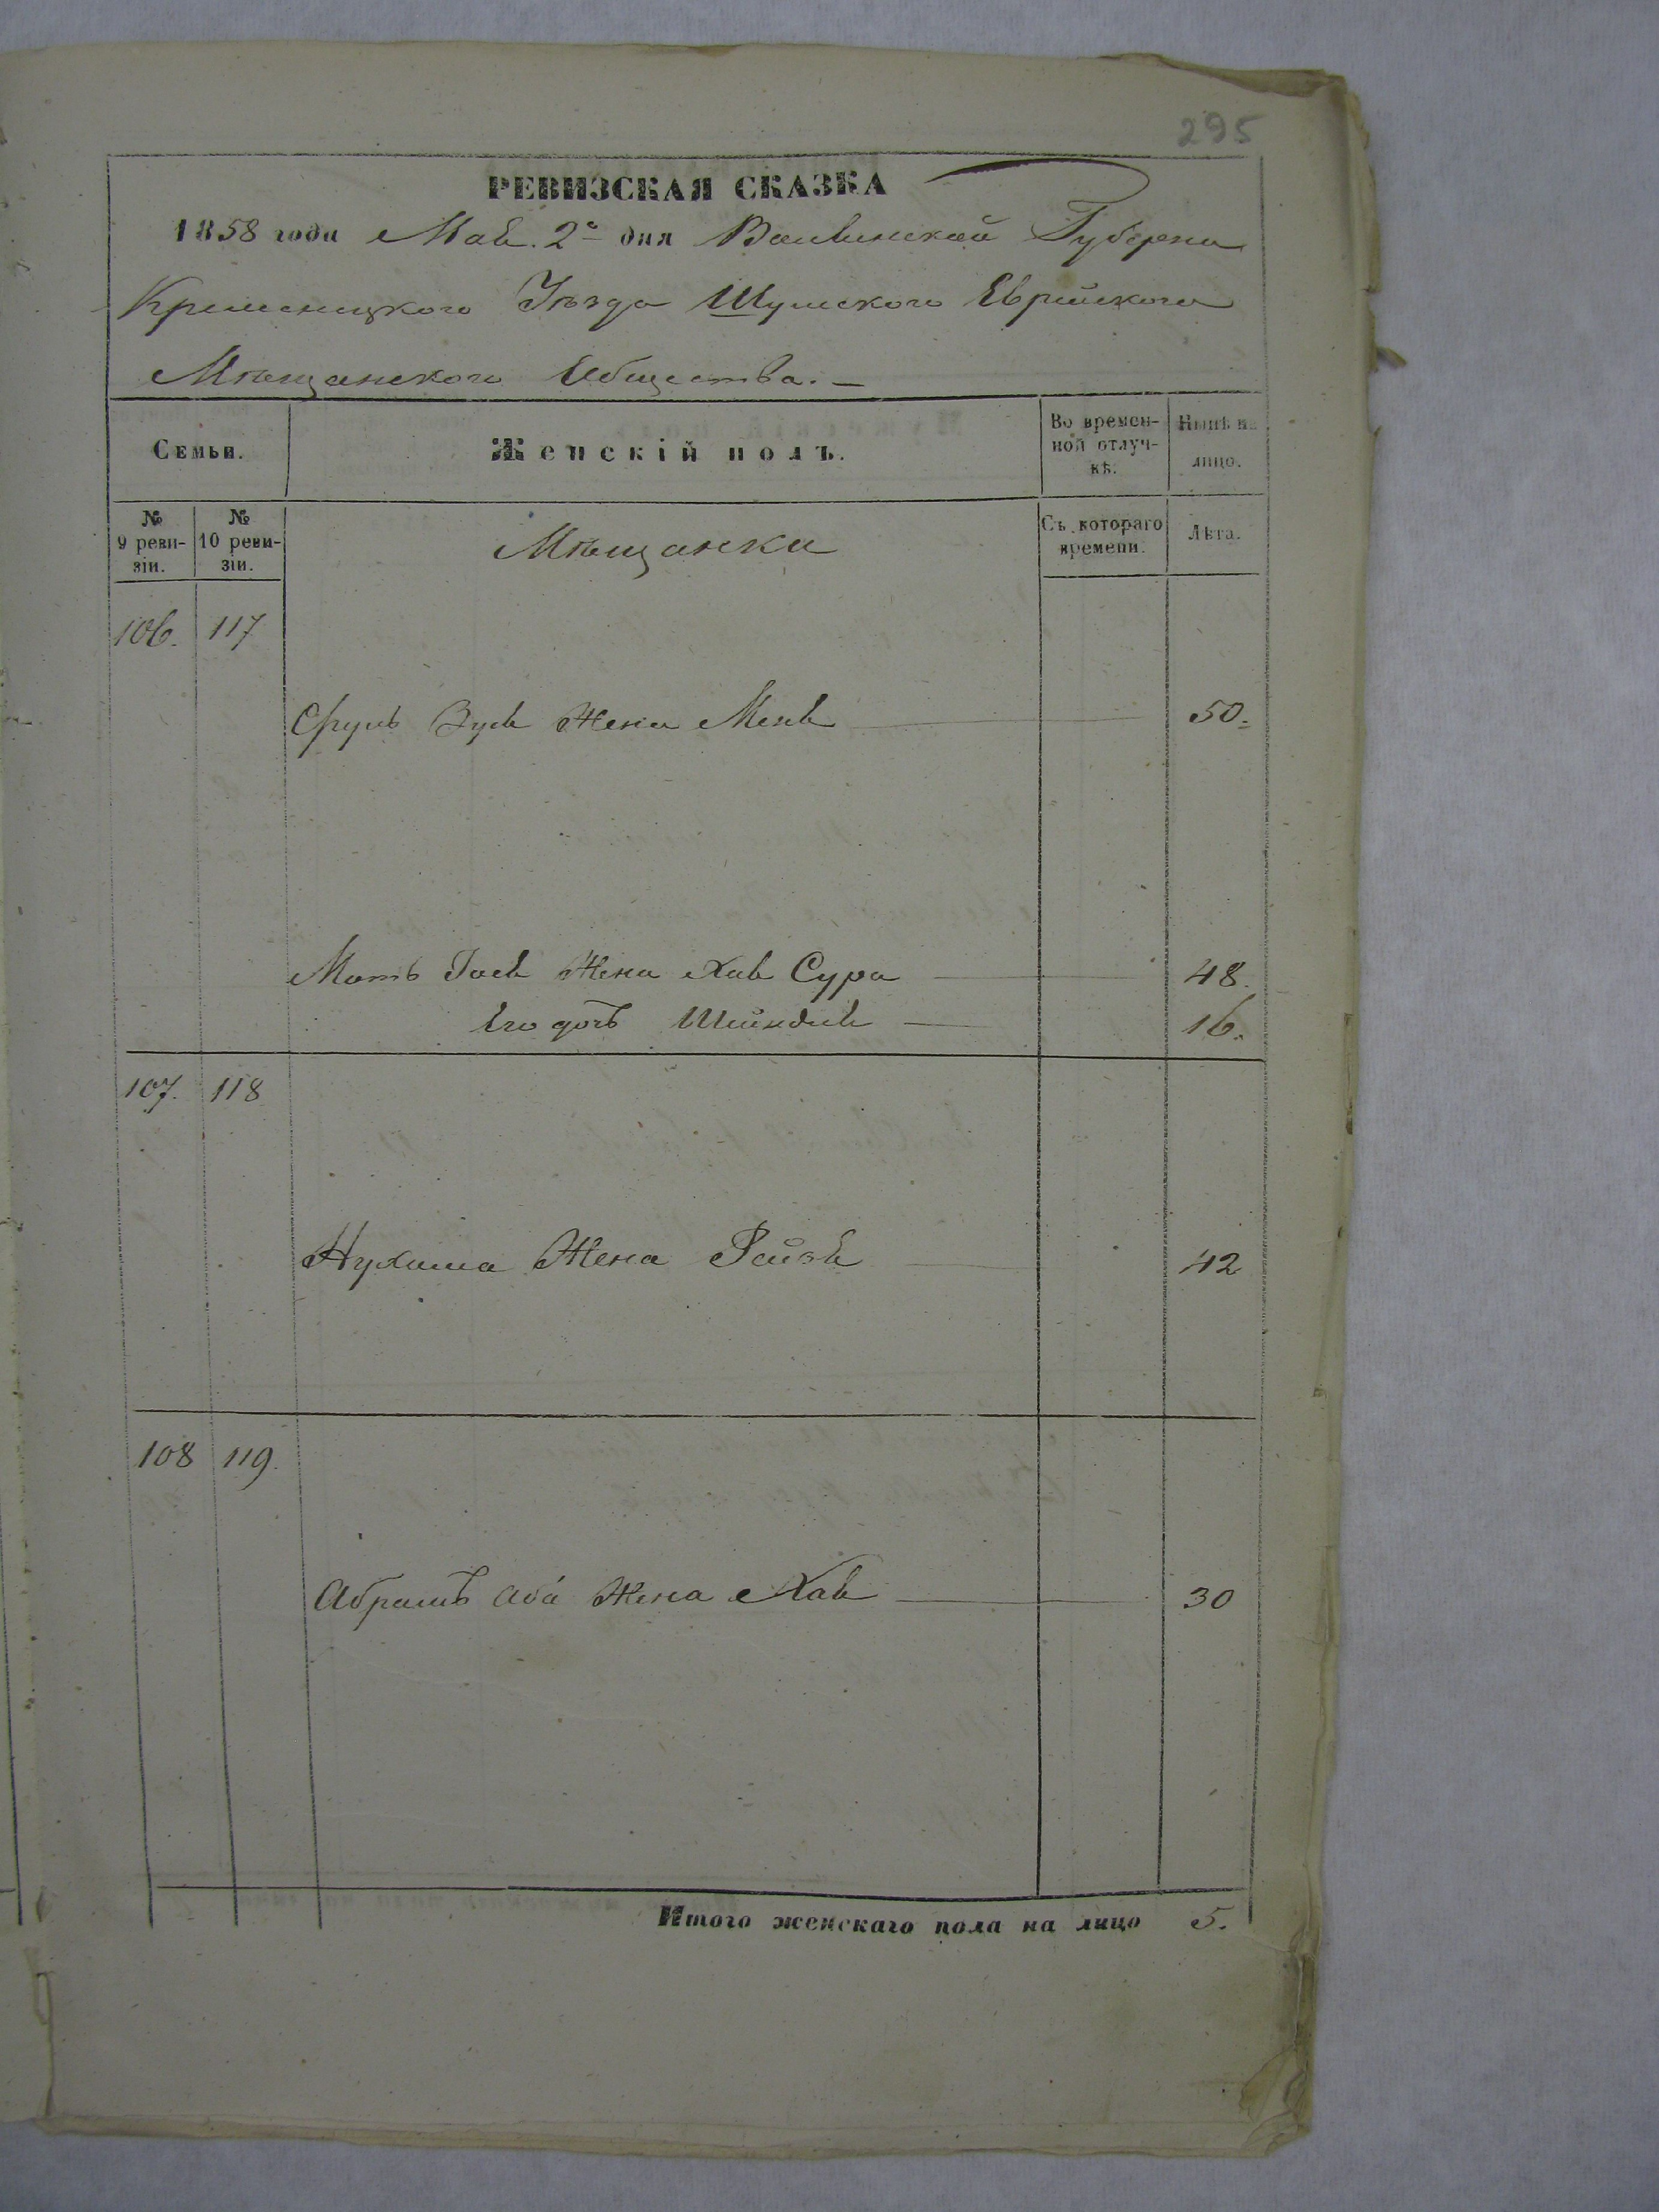 295
РЕВИЗСКАЯ СКАЗКА
1858 года Мая 2го дня Волынской Губернiи
Кременецкого Уѣзда Шумского Еврейского
Мѣщанского Общества.
Семьи.
Женскій полъ.
Во времен-
ной отлуч-
кѣ.
Нынѣ на
лицо.
№
9 реви-
зіи.
№
10 реви-
зіи.
Мѣщанки
Съ котораго
времени.
Лѣта.
106. 117
Сруль Зуся Жена Меня 50.
Жена Хая Сура 48.
Его дочь Шейндля 16.
107. 118
Нухима Жена Рейзя 42
108 119.
Абрамъ Аба Жена Хая 30
Итого женскаго пола на лицо 5.